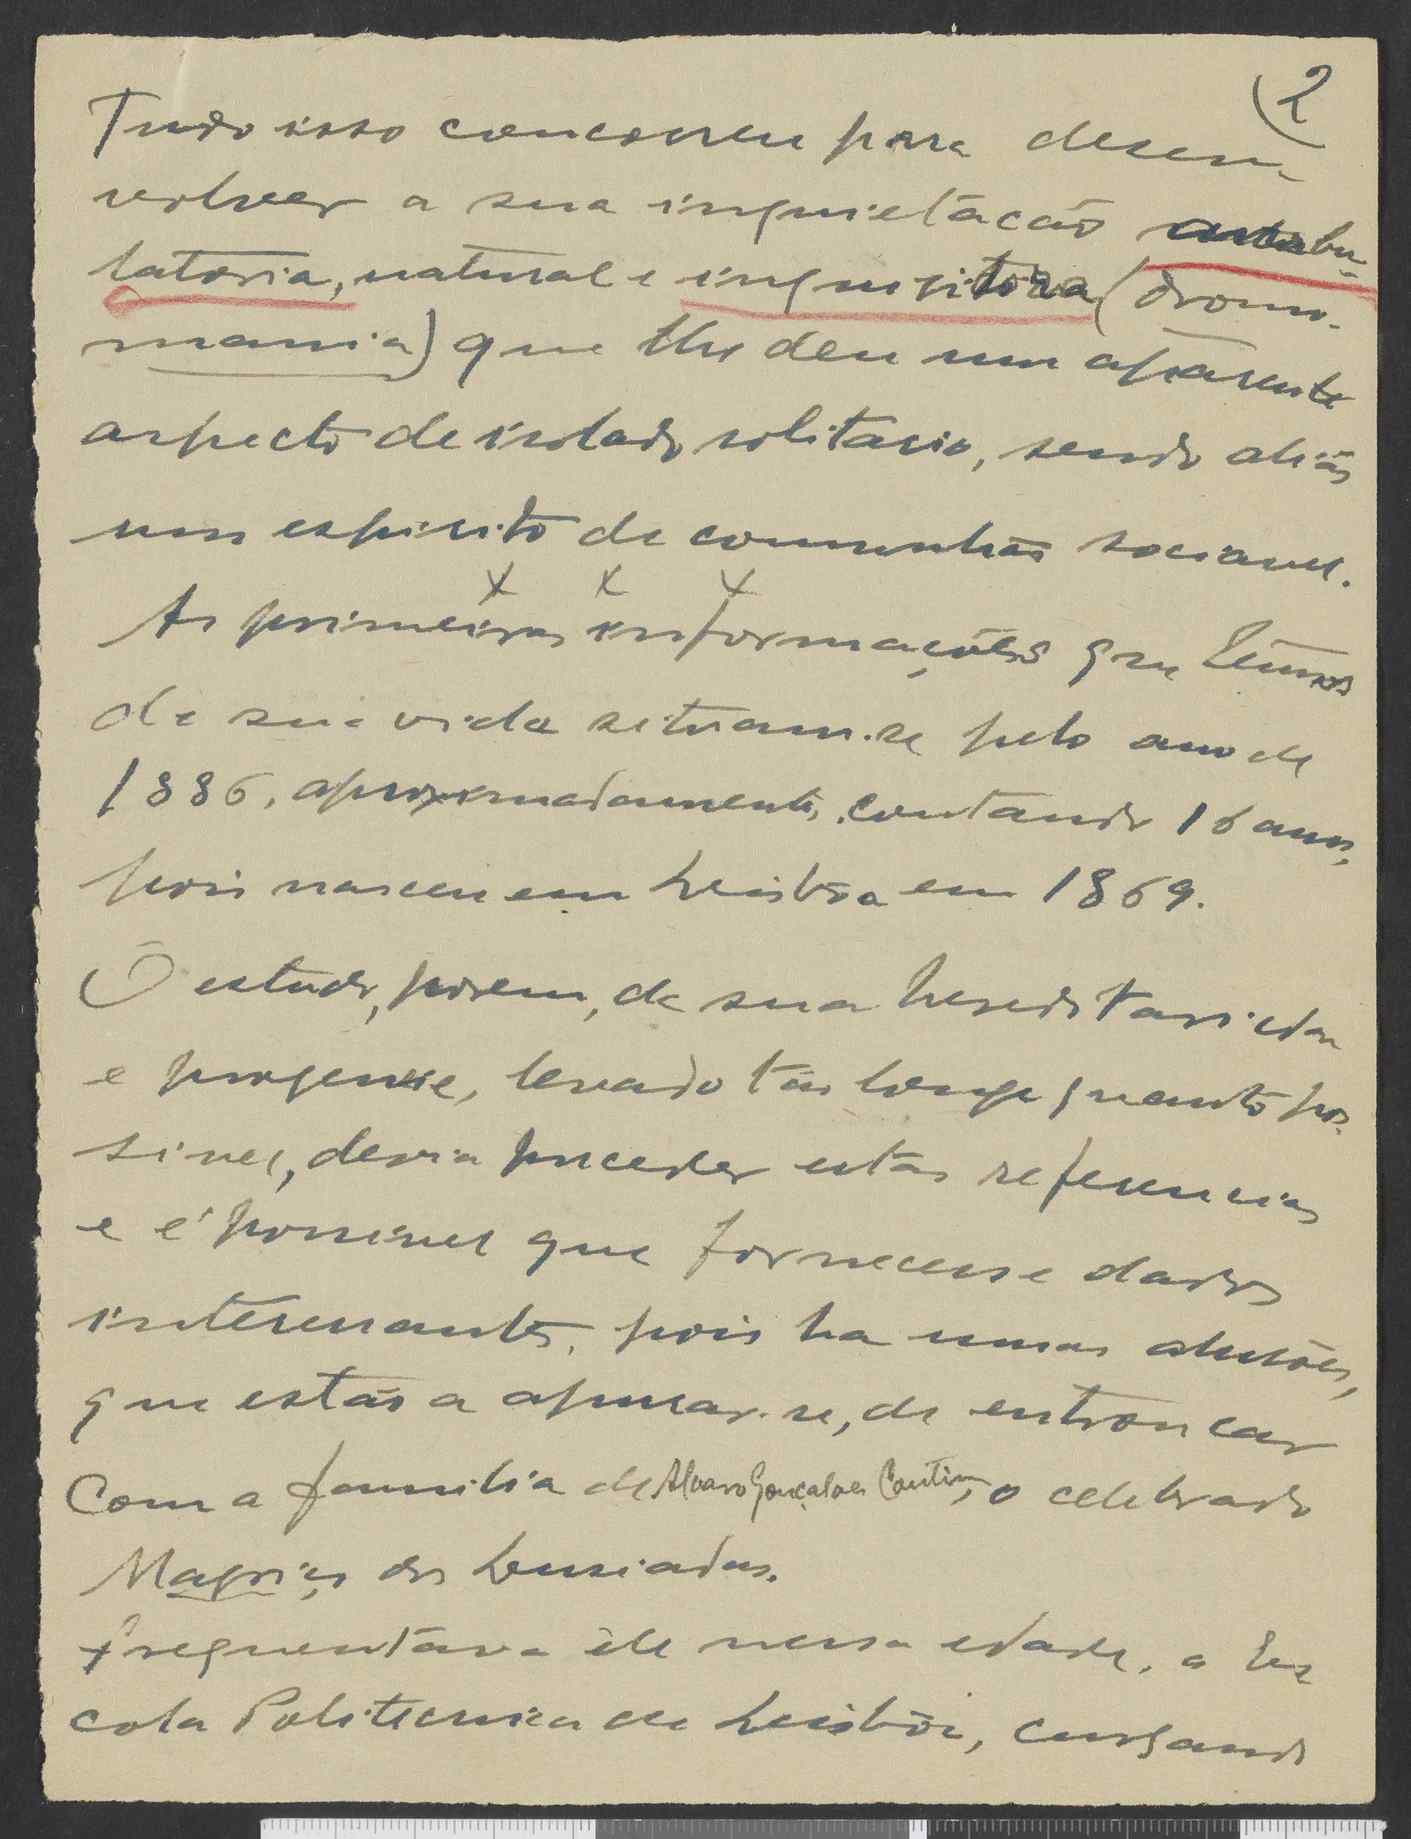 2
Tudo isso concorreu para desen-
volver a sua inquietação ambu-
latoria, natural e inquisitora (dromo-
mania) que lhe deu um aparente
aspecto de isolado solitario, sendo aliás
um espirito de comunhão sociavel.
x x x
As primeiras informações que temos
de sua vida situam-se pelo ano de
1886, aproximadamente, contando 16 anos,
pois nasceu em Lisbôa em 1869.
O estudo, porem, de sua hereditariedade
e progenie, levado tão longe quanto pos-
sivel, devia preceder estas referencias
e é possivel que fornecesse dados
interessantes, pois ha umas alusões,
que estão a apurar-se, de entroncar
com a familia de Alvaro Gonçalves Coutinho, o celebrado
Magriço dos Lusiadas.
Frequentava êle nessa edade, a Es
cola Politecnica de Lisbôa, cursando